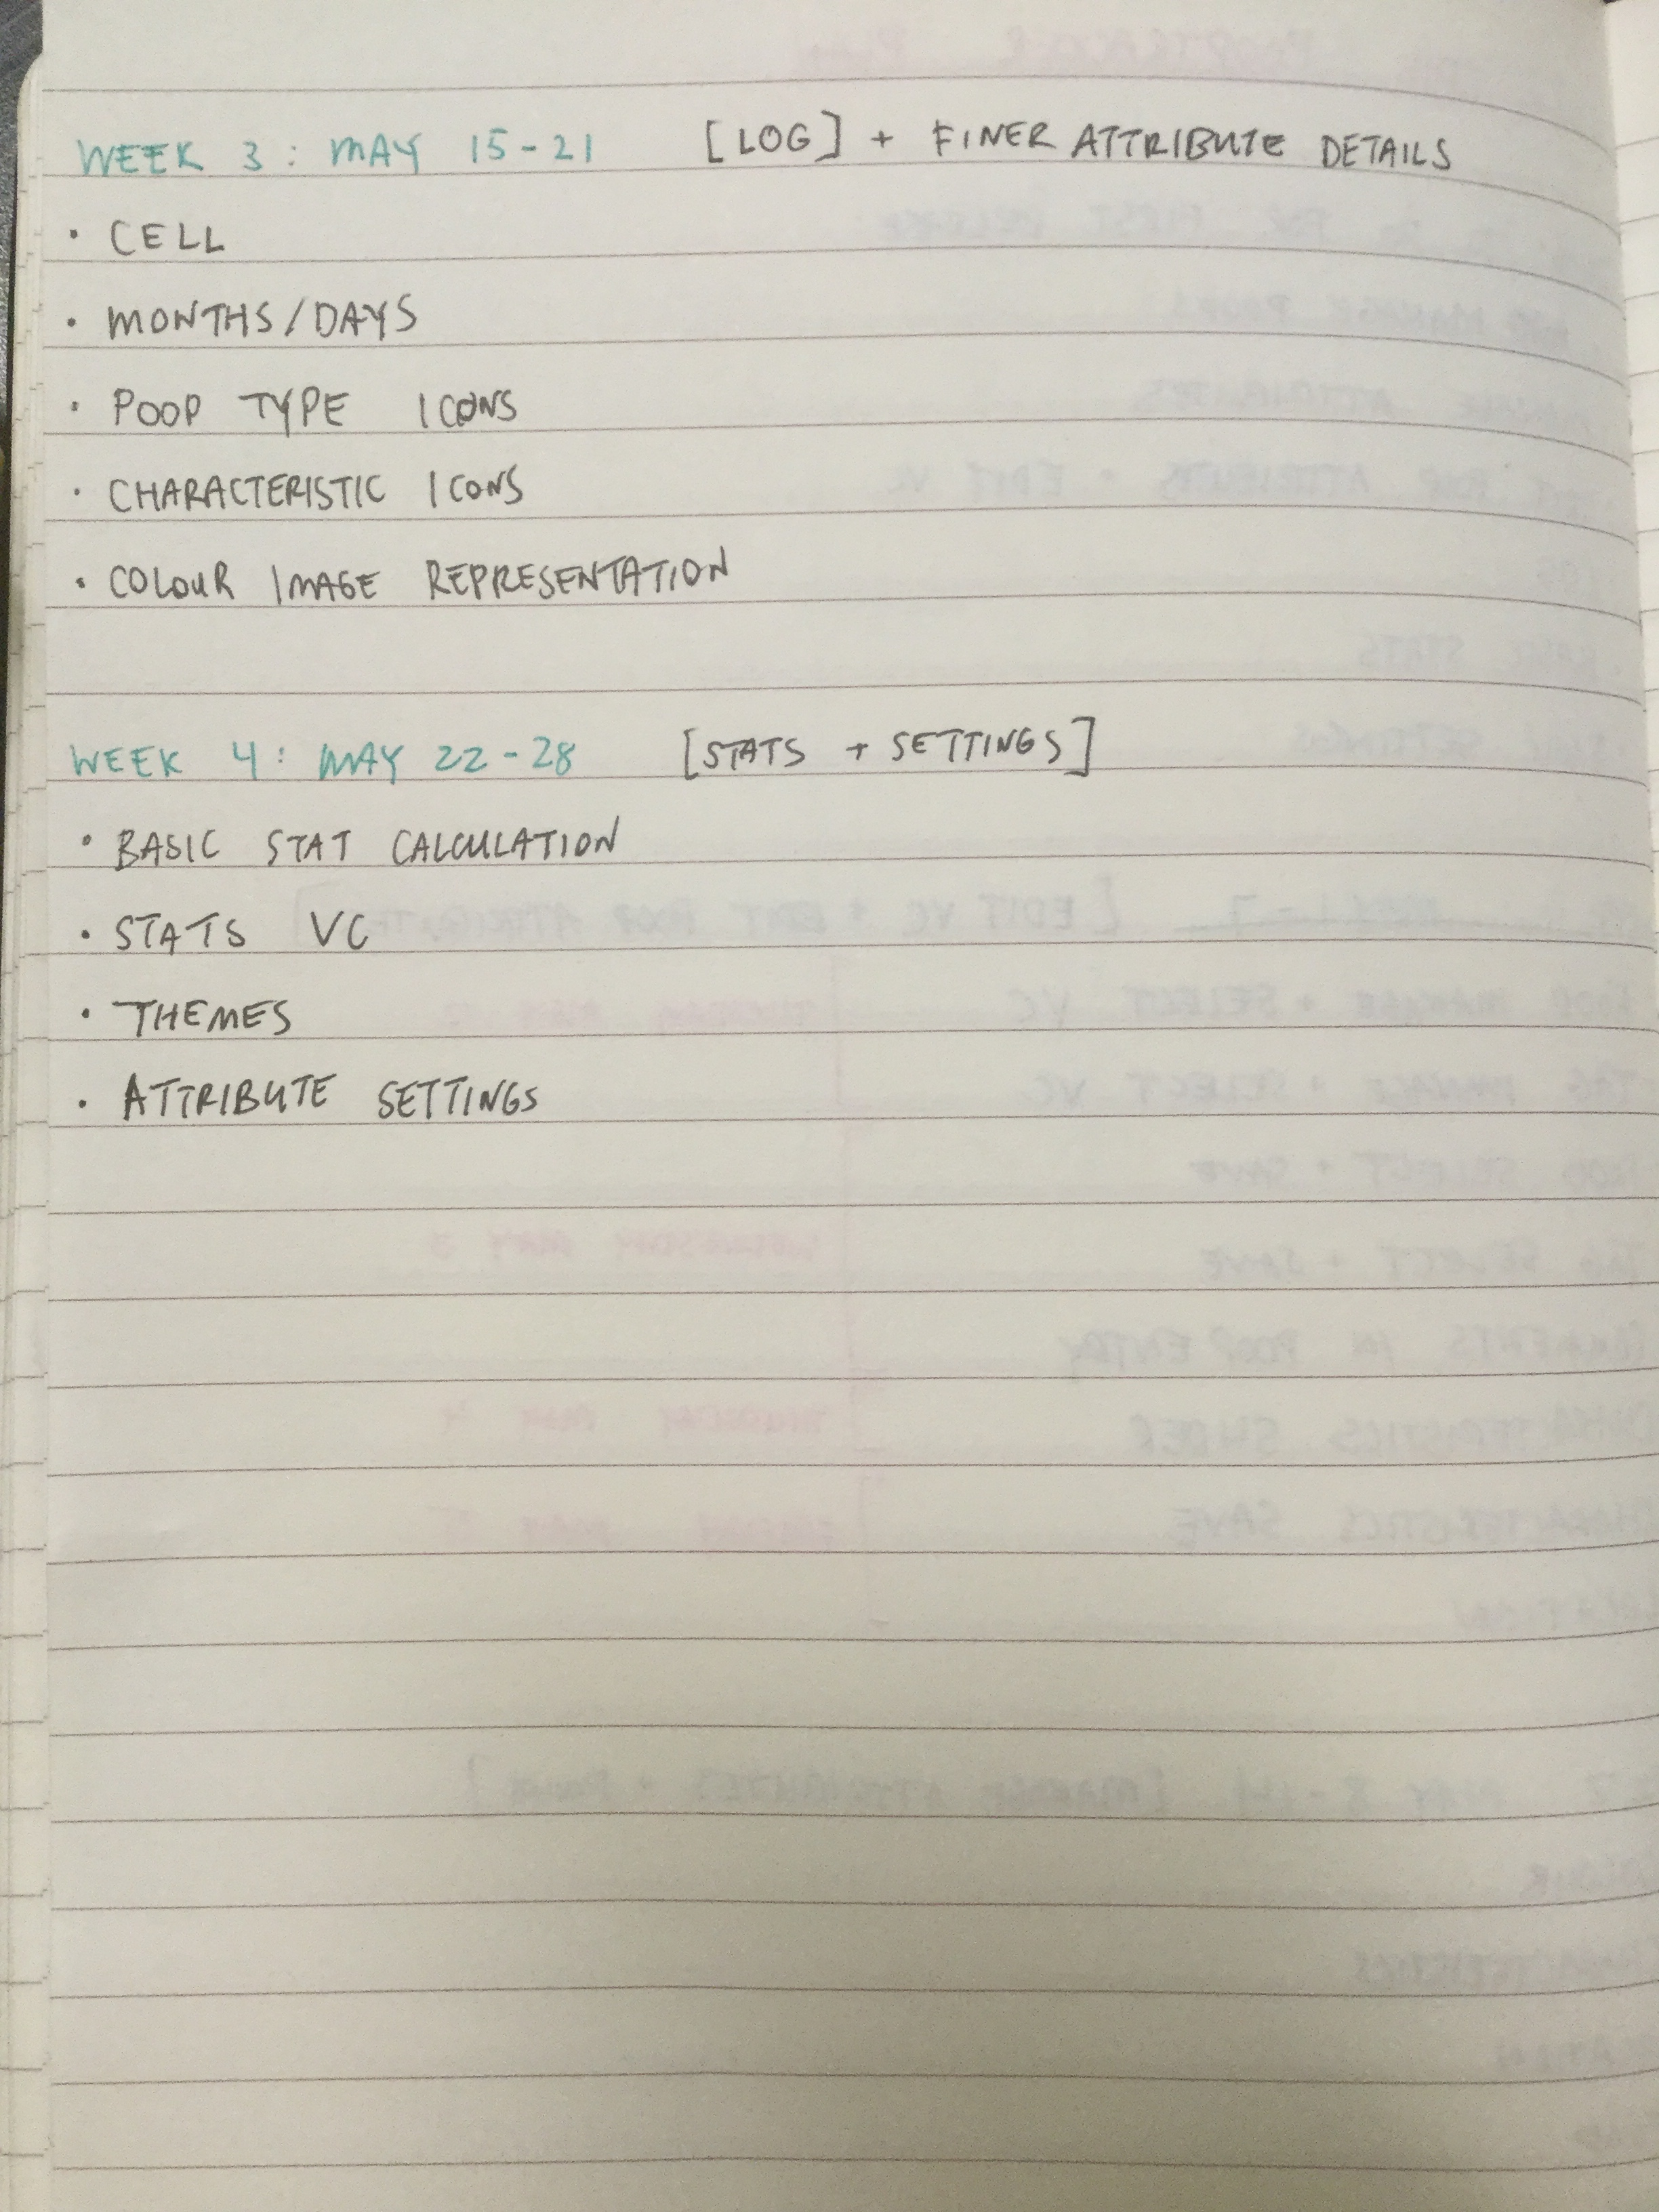 WEEK 3: MAY 15-21 [LOG] + FINER ATTRIBUTE DETAILS
• CELL
• MONTHS/DAYS
• POOP TYPE ICONS
• CHARACTERISTIC ICONS
• COLOUR IMAGE REPRESENTATION
WEEK 4: MAY 22-28 [STATS + SETTINGS]
• BASIC STAT CALCULATION
• STATS VC
• THEMES
• ATTRIBUTE SETTINGS